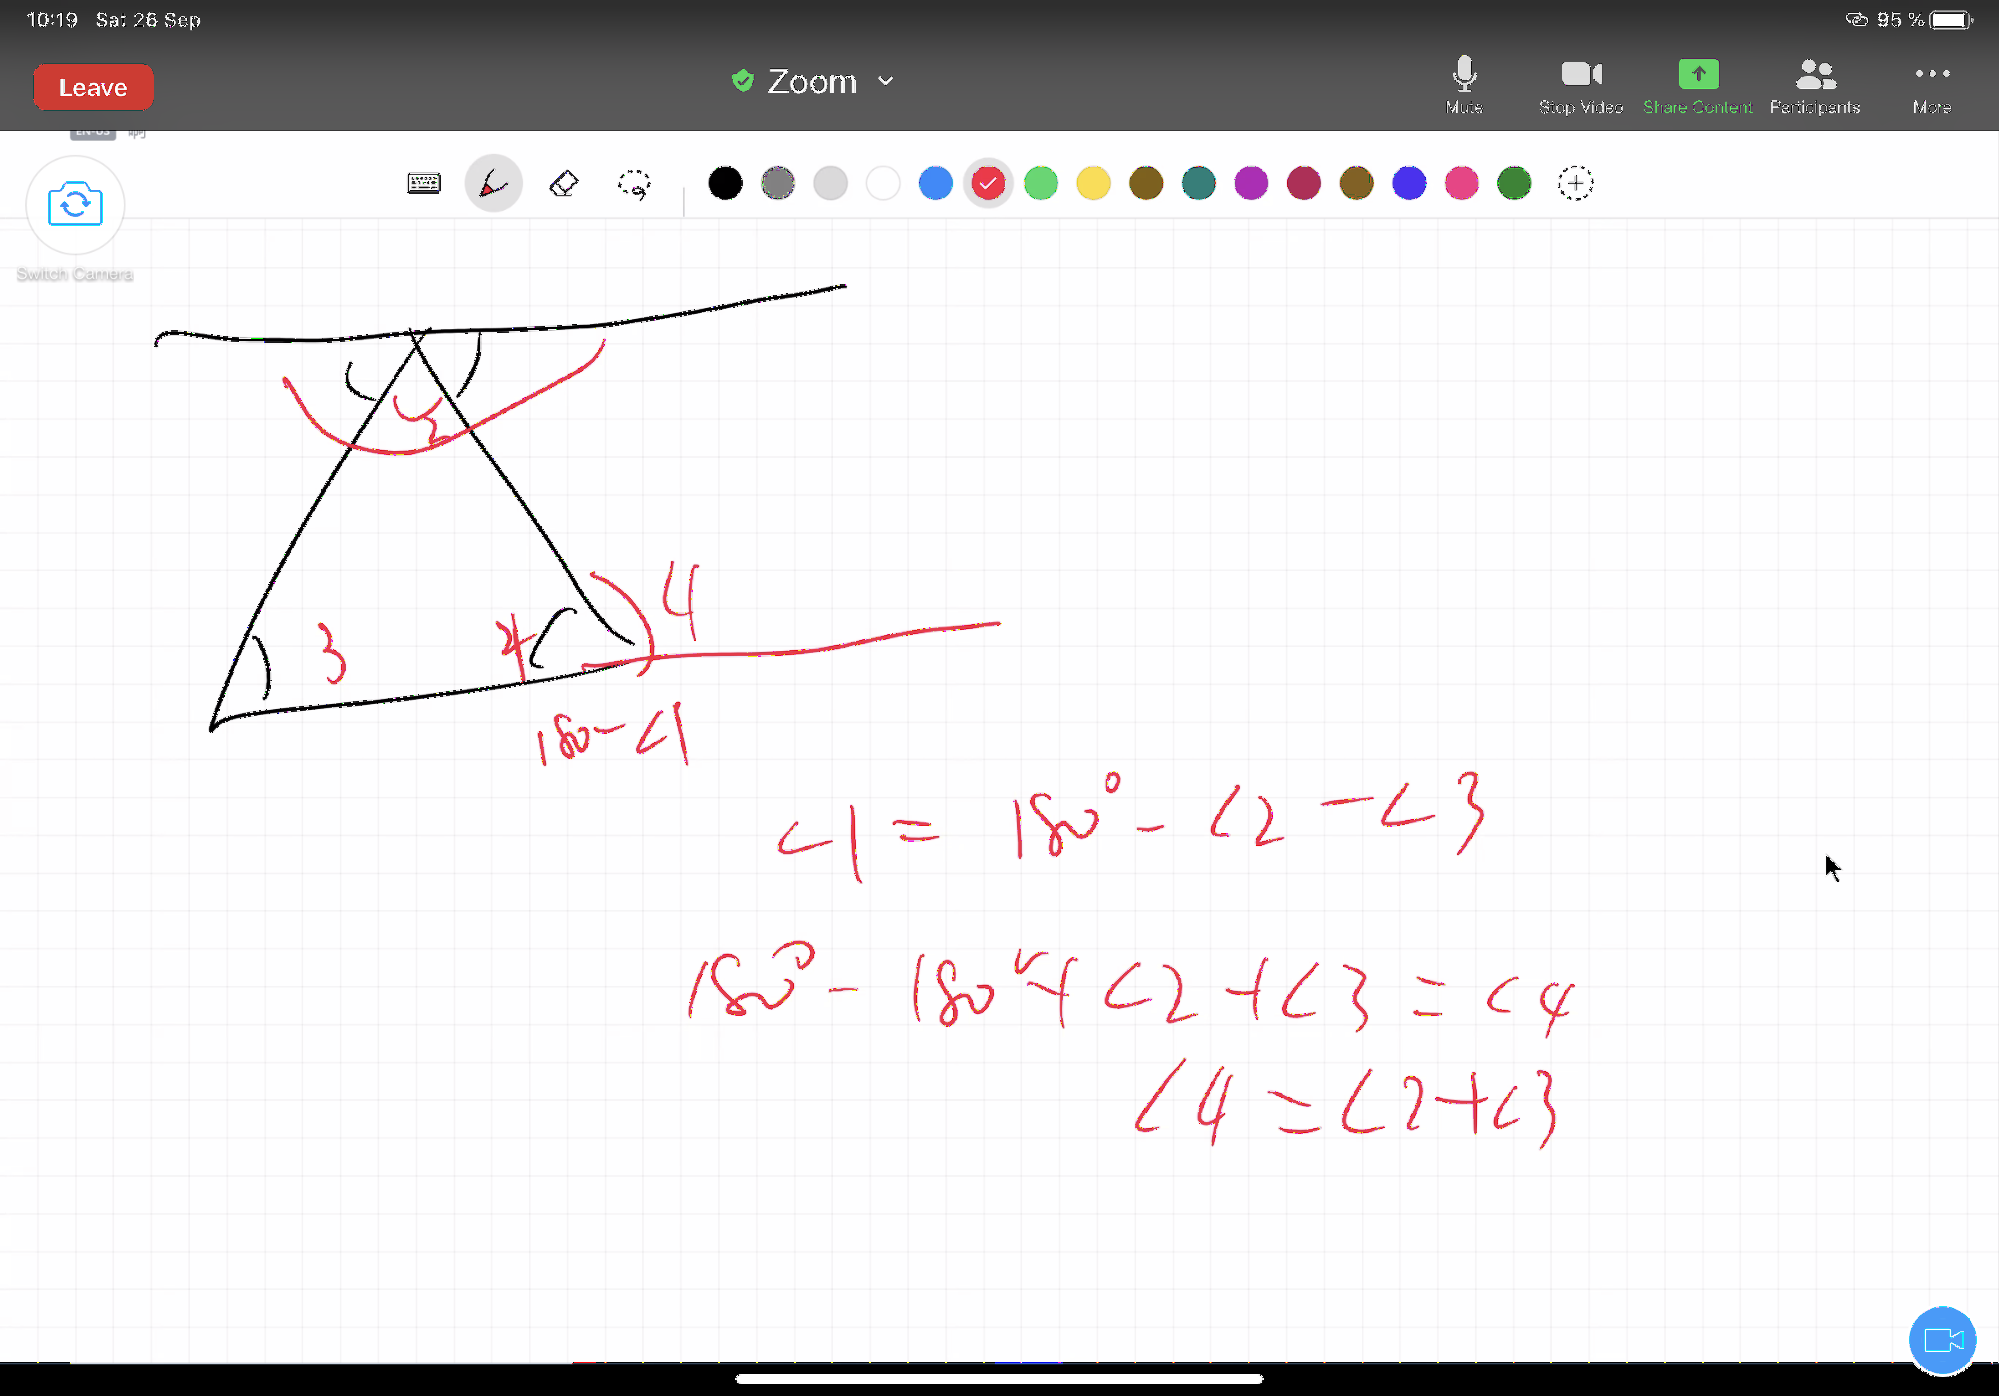 10:19 Sat 26 Sep
95 %
Leave
Zoom
Mute
Stop Video
Share Content
Participants
More
Switch Camera
2
4
3
180-<1
<1 = 180° - <2 - <3
180° - 180° + <2 + <3 = <4
<4 = <2+<3